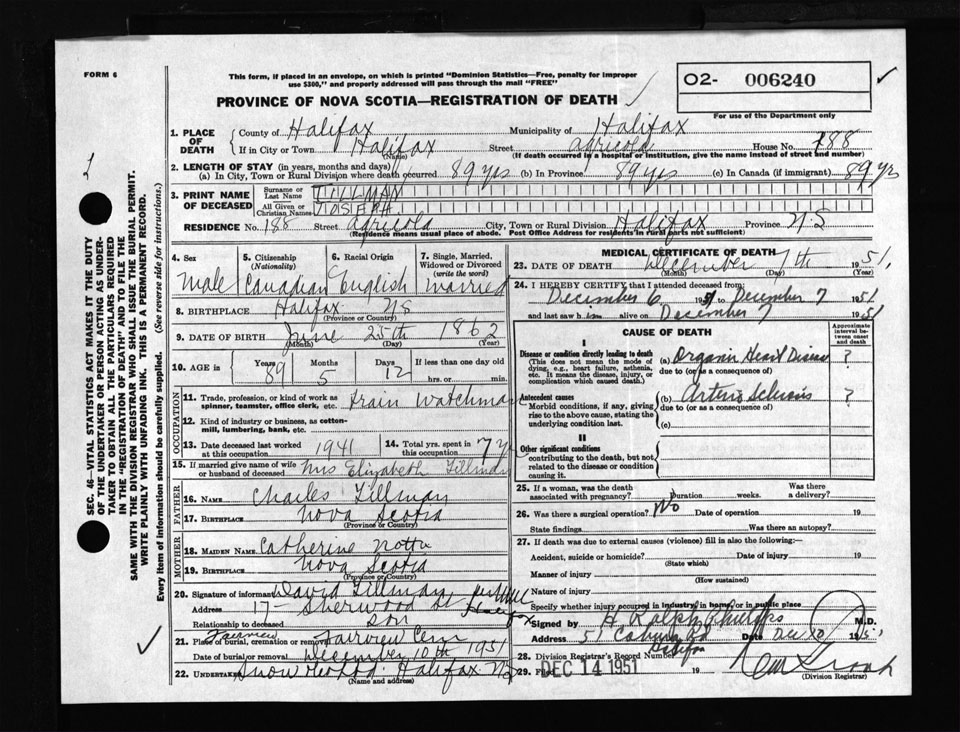 FORM 6
This form, if placed in an envelope, on which is printed "Dominion Statistics—Free, penalty for improper
use $300," and properly addressed will pass through the mail "FREE"
O2- 006240
PROVINCE OF NOVA SCOTIA—REGISTRATION OF DEATH
For use of the Department only
1. PLACE OF DEATH County of Halifax Municipality of Halifax
If in City or Town Halifax Street Agricola House No. 188
(Name) (If death occurred in a hospital or institution, give the name instead of street and number)
2. LENGTH OF STAY (in years, months and days)
(a) In City, Town or Rural Division where death occurred 89 yrs (b) In Province 89 yrs (c) In Canada (if immigrant) 89 yrs
3. PRINT NAME OF DECEASED Surname or Last Name TILLMAN
All Given or Christian Names JOSEPH
RESIDENCE No. 188 Street Agricola City, Town or Rural Division Halifax Province N.S
(Residence means usual place of abode. Post Office Address for residents in rural parts not sufficient)
4. Sex Male
5. Citizenship (Nationality) Canadian
6. Racial Origin English
7. Single, Married, Widowed or Divorced (write the word) Married
8. BIRTHPLACE Halifax NS
(Province or Country)
9. DATE OF BIRTH June 25th 1862
(Month) (Day) (Year)
10. AGE in Years 89 Months 5 Days 12 If less than one day old
hrs. or min.
OCCUPATION
11. Trade, profession, or kind of work as
spinner, teamster, office clerk, etc. Train Watchman
12. Kind of industry or business, as cotton-
mill, lumbering, bank, etc.
13. Date deceased last worked
at this occupation 1941
14. Total yrs. spent in
this occupation 7 y
15. If married give name of wife
or husband of deceased Mrs Elizabeth Tillman
FATHER
16. NAME Charles Tillman
17. BIRTHPLACE Nova Scotia
(Province or Country)
MOTHER
18. MAIDEN NAME Catherine
19. BIRTHPLACE Nova Scotia
(Province or Country)
20. Signature of informant David Tillman
Address 17 - Sherwood St Halifax
Relationship to deceased son
21. Place of burial, cremation or removal Fairview Cem
Fairview
Date of burial or removal December 10th 1951
22. UNDERTAKER Snow Halifax NS
(Name and address)
MEDICAL CERTIFICATE OF DEATH
23. DATE OF DEATH December 7th 1951.
(Month) (Day) (Year)
24. I HEREBY CERTIFY that I attended deceased from:
December 6 1951 to December 7 1951
and last saw him alive on December 7 1951
CAUSE OF DEATH
Approximate interval between onset and death
I
Disease or condition directly leading to death (a) Organic Heart Disease ?
(This does not mean the mode of
dying, e.g., heart failure, asthenia,
etc. It means the disease, injury, or
complication which caused death.)
due to (or as a consequence of)
Antecedent causes (b) Arterio Sclerosis ?
Morbid conditions, if any, giving
rise to the above cause, stating the
underlying condition last.
due to (or as a consequence of)
(c)
II
Other significant conditions
contributing to the death, but not
related to the disease or condition
causing it.
25. If a woman, was the death
associated with pregnancy? Duration weeks. Was there
a delivery?
26. Was there a surgical operation? No Date of operation 19
State findings Was there an autopsy?
27. If death was due to external causes (violence) fill in also the following:—
Accident, suicide or homicide? Date of injury 19
(State which)
Manner of injury
(How sustained)
Nature of injury
Specify whether injury occurred in industry, in home, or in public place
Signed by H. Ralph Phillips M.D.
Address 51 Coburg Rd Halifax Date Dec 10 195
28. Division Registrar's Record Number
29. Filed DEC 14 1951 19
(Division Registrar)
SEC. 46—VITAL STATISTICS ACT MAKES IT THE DUTY
OF THE UNDERTAKER OR PERSON ACTING AS UNDER-
TAKER TO OBTAIN ALL THE PARTICULARS REQUIRED
IN THE "REGISTRATION OF DEATH" AND TO FILE THE
SAME WITH THE DIVISION REGISTRAR WHO SHALL ISSUE THE BURIAL PERMIT.
WRITE PLAINLY WITH UNFADING INK. THIS IS A PERMANENT RECORD.
Every item of information should be carefully supplied. (See reverse side for instructions.)